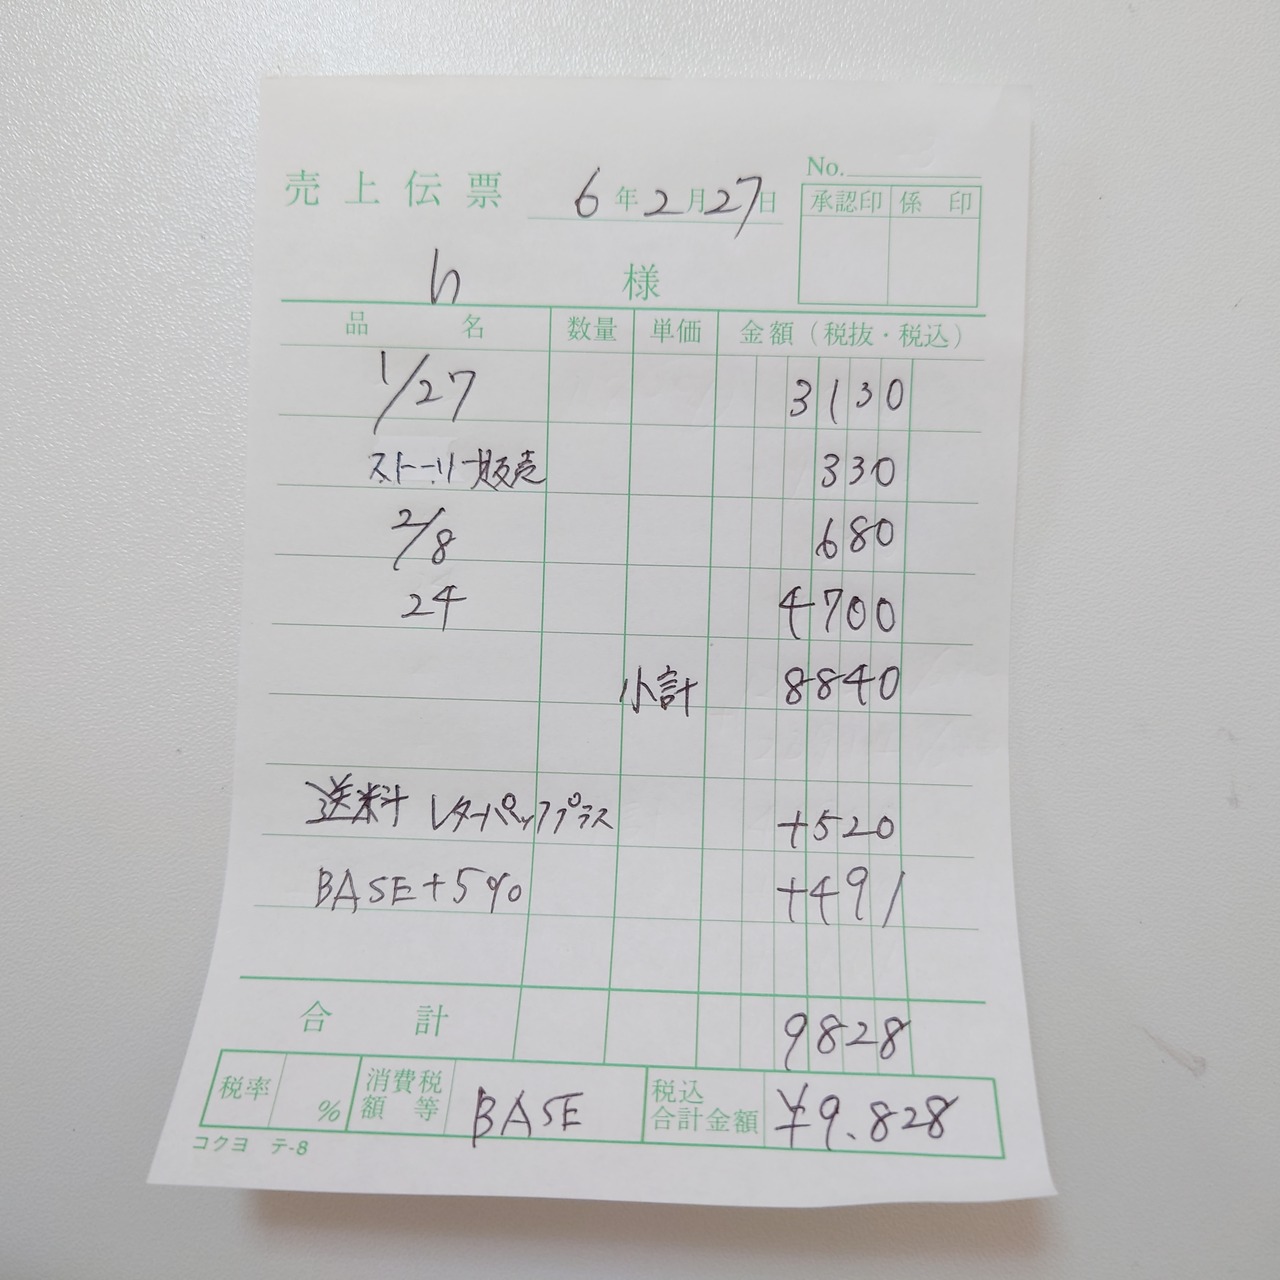 No.
売上伝票 6年2月27日
承認印 係印
h 様
品名 数量 単価 金額（税抜・税込）
1/27 3130
ストーリー販売 330
2/8 680
24 4700
小計 8840
送料 レターパッププラス +520
BASE+5% +491
合計 9828
税率 % 消費税額等 BASE 税込合計金額 ¥9.828
コクヨ テ-8